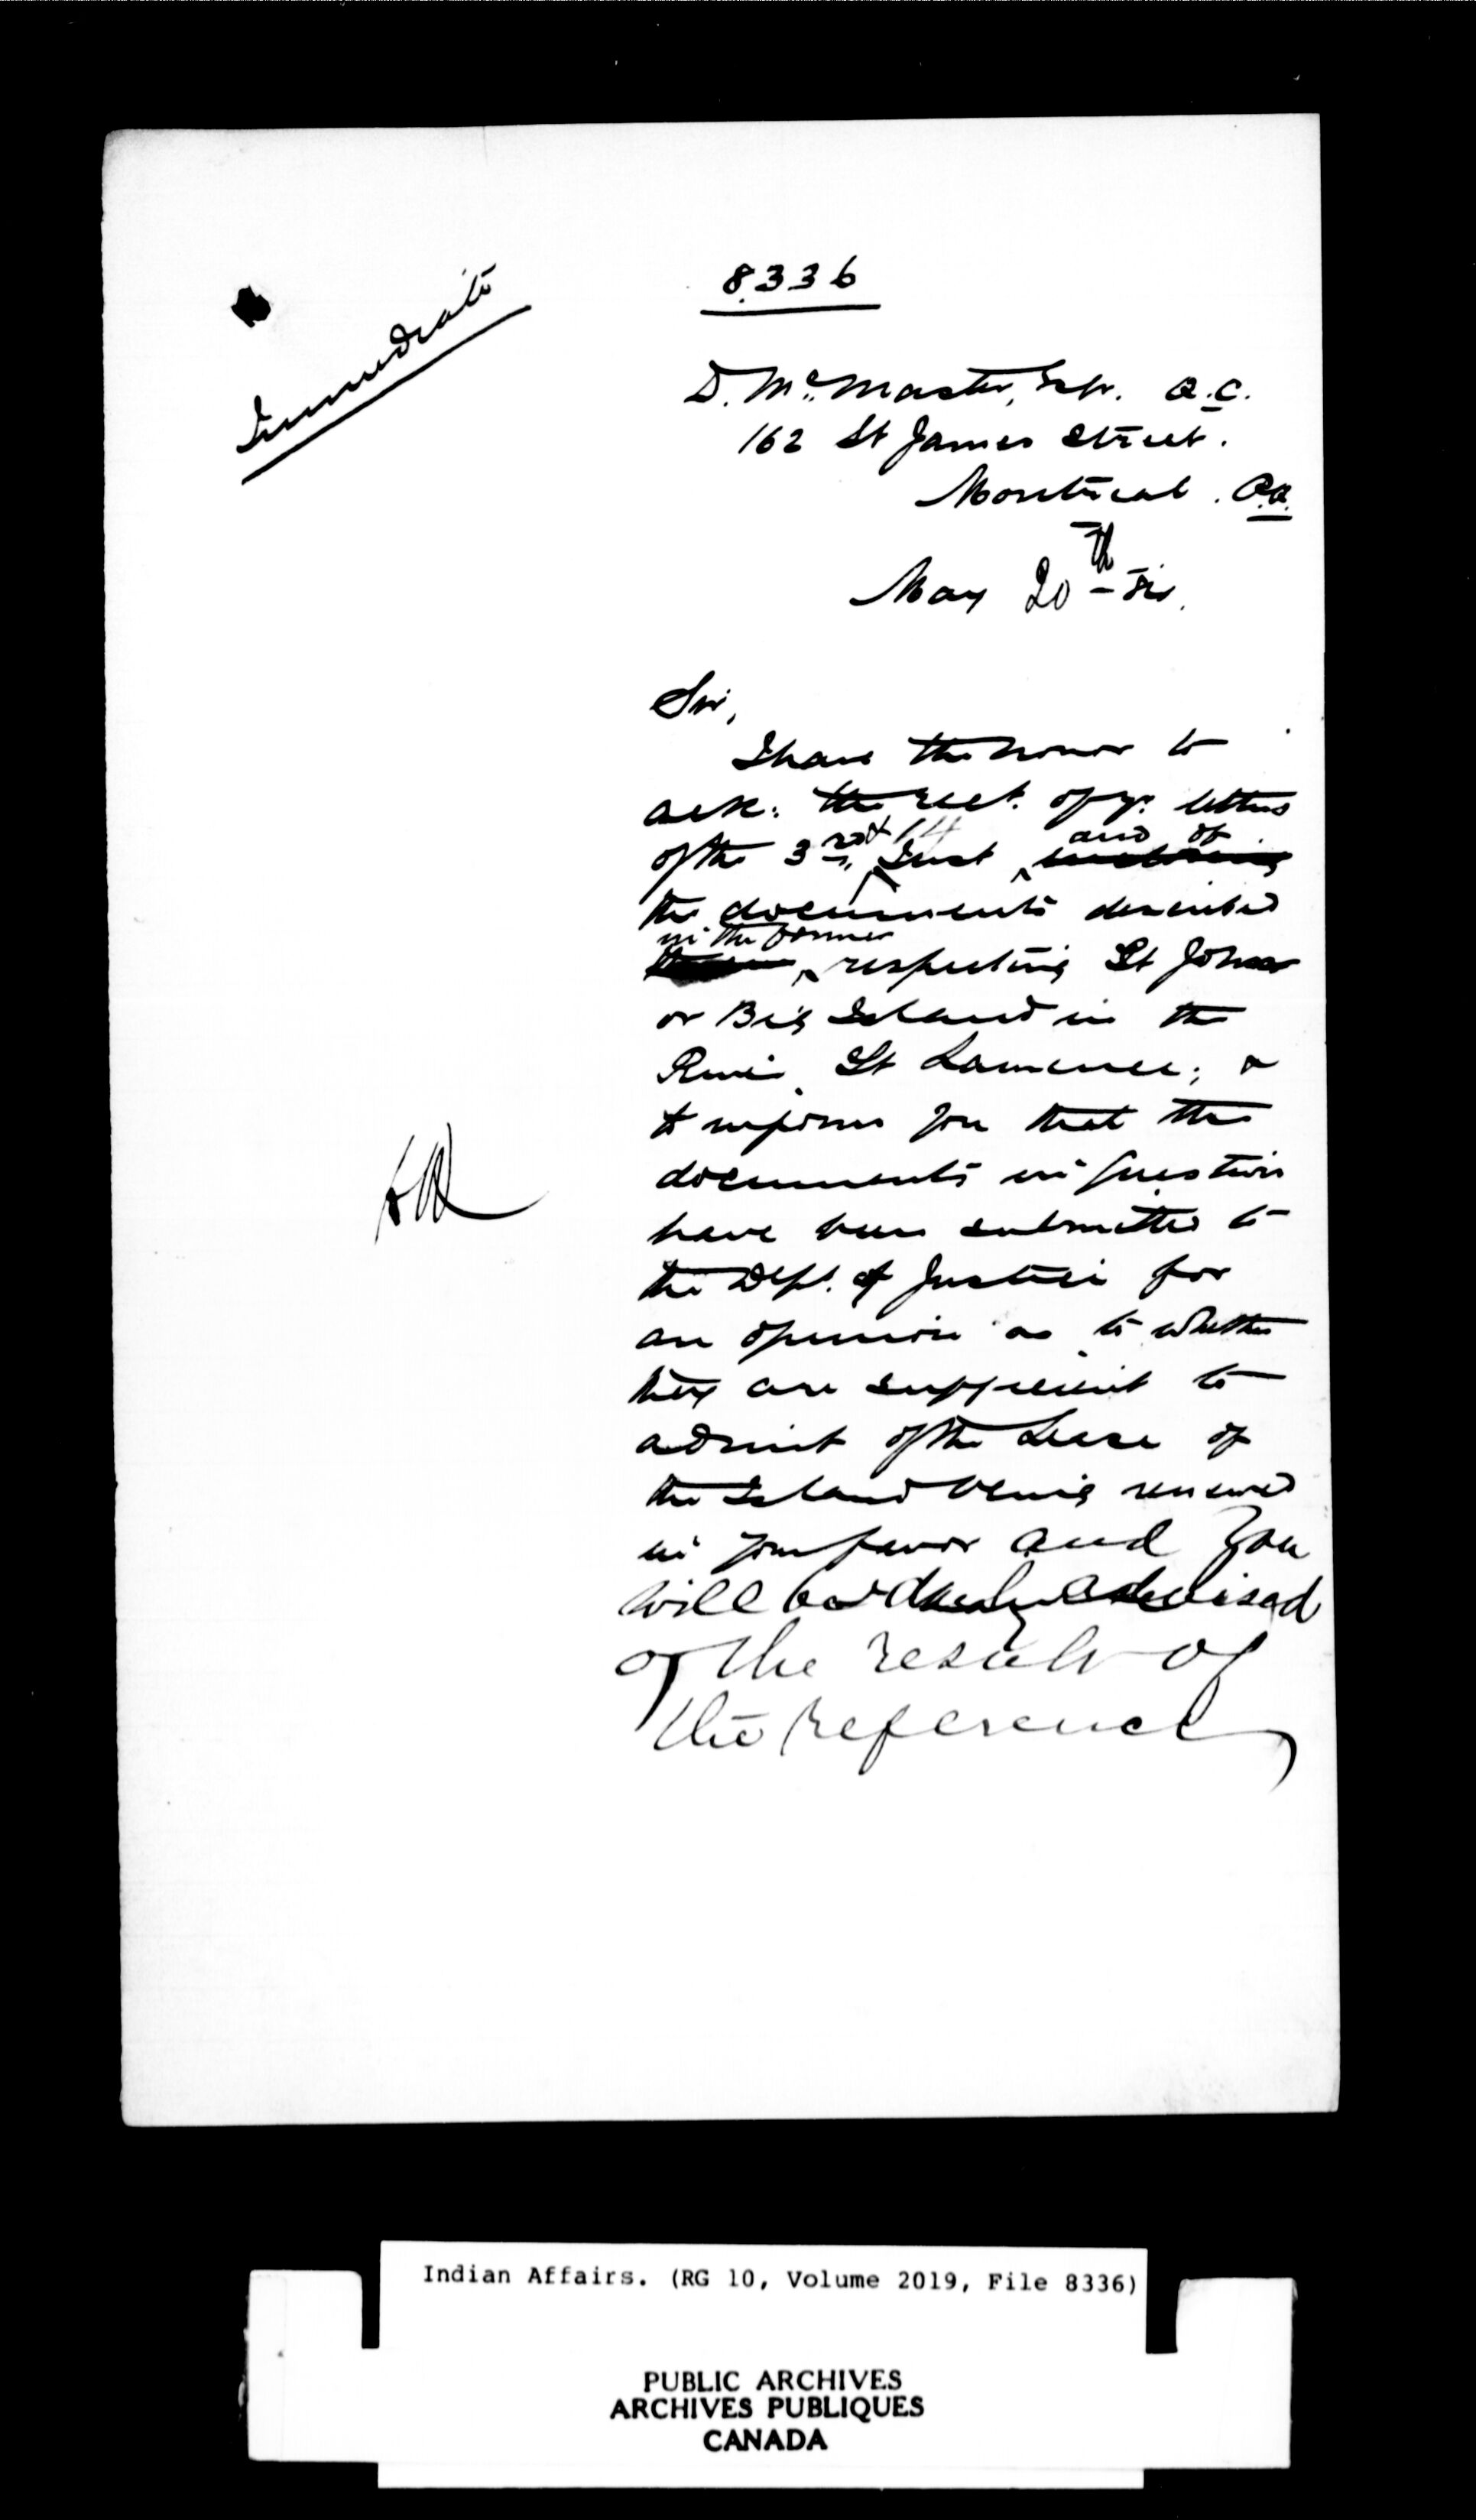 8336
Immediate
D. McMaster, Esqr. Q.C.
162 St James Street.
Montreal. P.Q.
May 20th
Sir,
I have the honor to
ack: the rect. of yr. letters
of the 3rd & 14 Inst and of
the documents described
in the former respecting St Johns
or Big Island in the
River St Lawrence; &
to inform you that the
documents in question
have been submitted to
the Dept. of Justice for
an opinion as to whether
they are sufficient to
admit of the Lease of
the Island being renewed
in your favor and you
will be duly advised
of the result of
the reference
Indian Affairs. (RG 10, Volume 2019, File 8336)
PUBLIC ARCHIVES
ARCHIVES PUBLIQUES
CANADA